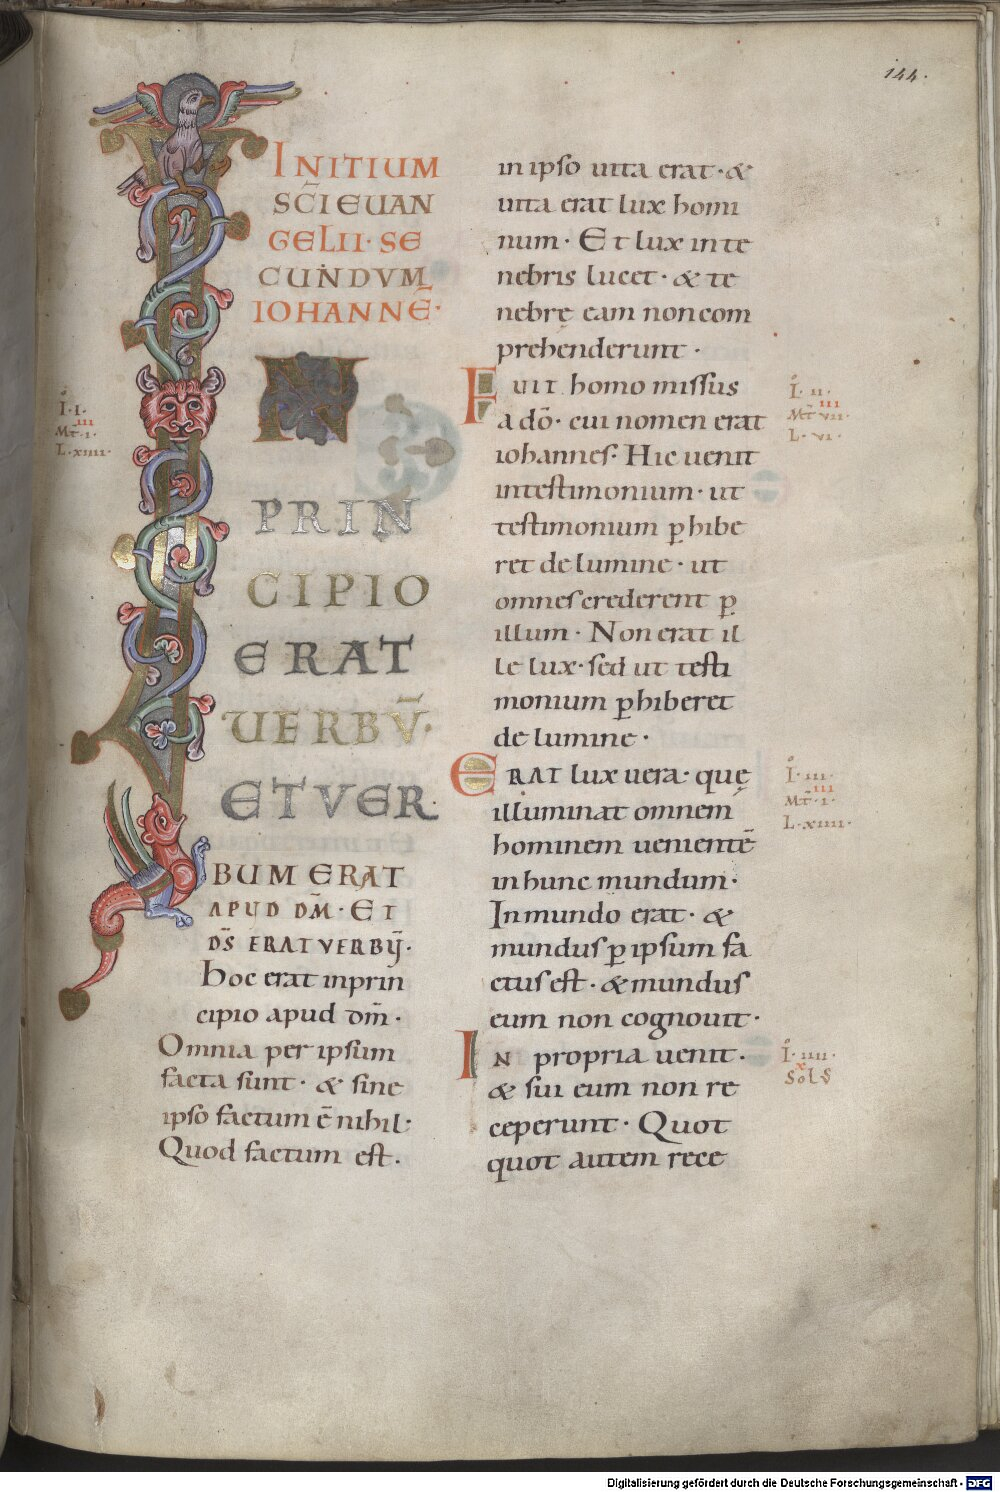 144.
INITIUM
SC̄I EUAN
GELII· SE
CUNDVM
IOHANNĒ·
IN
PRIN
CIPIO
ERAT
UERBŪ·
ET VER
BUM ERAT
APUD DM̄· ET
DS̄ ERAT VERBŪ·
hoc erat inprin
cipio apud dm̄·
Omnia per ipsum
facta sunt· & sine
ipso factum ē nihil·
Quod factum est·
I·I·
III
MT̄·I·
L·XIIII·
in ipso uita erat· &
uita erat lux homi
num· Et lux inte
nebris lucet· & te
nebrę eam noncom
prehenderunt·
FUIT homo missus
a dō· cui nomen erat
iohannes· Hic uenit
intestimonium· ut
testimonium ꝑhibe
ret de lumine· ut
omnes crederent ꝑ
illum· Non erat il
le lux· sed ut testi
monium ꝑhiberet
de lumine·
ERAT lux uera· quę
illuminat omnem
hominem uenientē
inhunc mundum·
Inmundo erat· &
mundus ꝑ ipsum fa
ctus est· & mundus
eum non cognouit·
IN propria uenit·
& sui eum non re
ceperunt· Quot
quot autem rece
I·II·
III
MT̄·VII·
L·VI·
I·III·
III
MT̄·I·
L·XIIII·
I·IIII·
X
SOLS
Digitalisierung gefördert durch die Deutsche Forschungsgemeinschaft - DFG